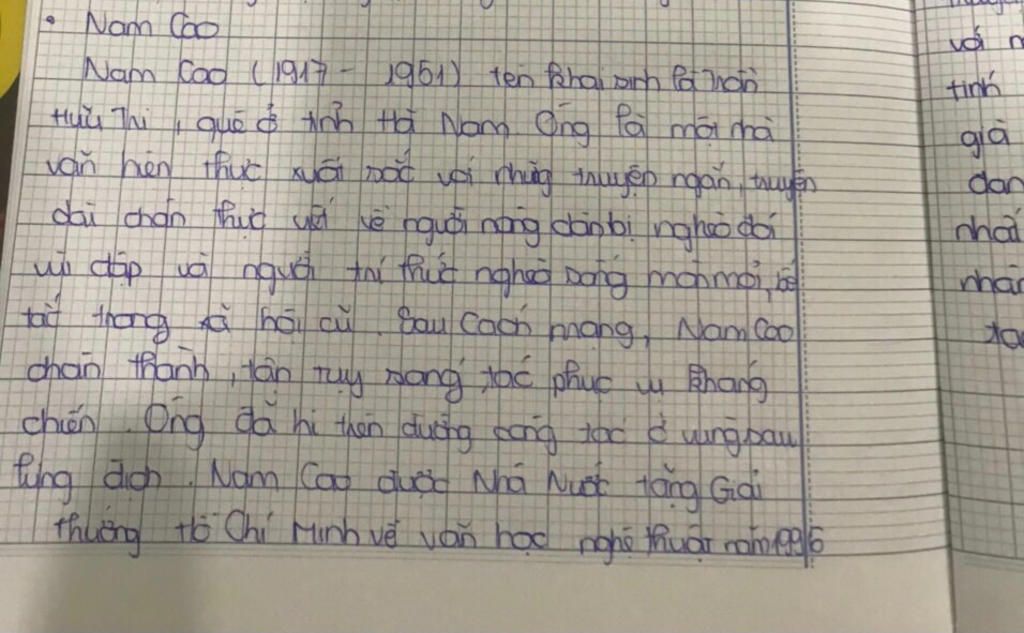 • Nam Cao
Nam Cao (1917 - 1951) tên khai sinh là Trần
Hữu Tri, quê ở tỉnh Hà Nam. Ông là một nhà
văn hiện thực xuất sắc với những truyện ngắn, truyện
dài chân thực viết về người nông dân bị nghèo đói
vùi dập và người trí thức nghèo sống mòn mỏi, bế
tắc trong xã hội cũ. Sau Cách mạng, Nam Cao
chân thành, tận tuỵ sáng tác phục vụ kháng
chiến. Ông đã hi trên đường công tác ở vùng sau
lưng địch. Nam Cao được Nhà Nước tặng Giải
thưởng Hồ Chí Minh về văn học nghệ thuật năm 1996
với
tính
giả
dan
nhất